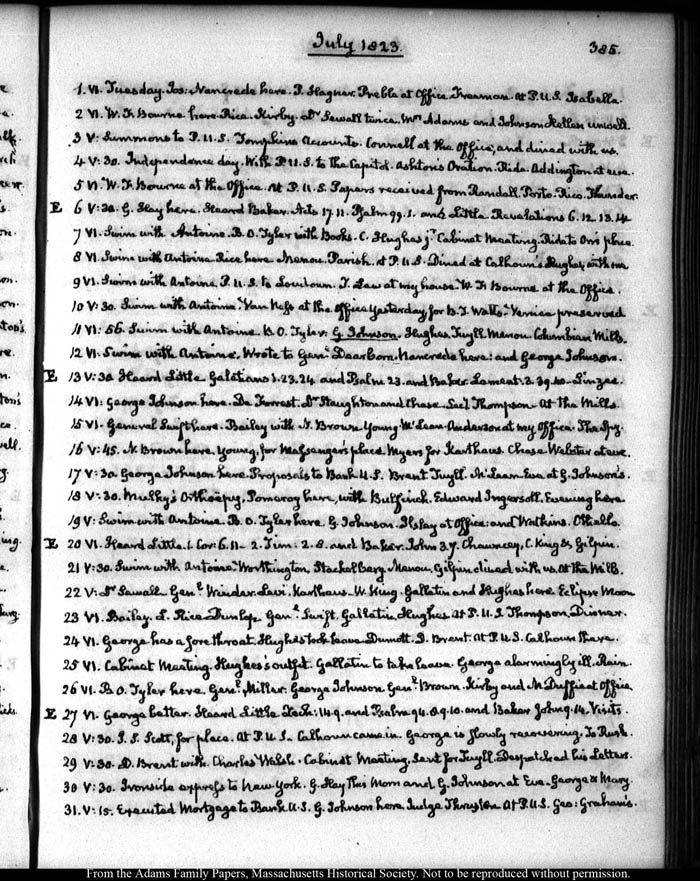 July 1823.
385.
1. VI. Tuesday. Jos: Nancrede here. P. Hagner. Preble at Office. Freeman. At P.U.S. Isabella.
2 VI. W. F. Bourne here. Rice. Kirby. Dr Sewall twice. Mrs Adams and Johnson Hellen unwell.
3 V: Summons to P.U.S. Tompkins Accounts. Connell at the Office, and dined with us.
4 V: 30. Independence day. With P.U.S. to the Capitol. Ashton's Oration. Ride. Addington at eve.
5 VI. W. F. Bourne at the Office. At P.U.S. Papers received from Randall. Porto-Rico. Thunder.
E 6 V: 30. G. Hay here. Heard Baker. Acts 17. 11. Psalm 99. 1. and Little. Revelations 6. 12. 13. 14
7 VI. Swim with Antoine. B. O. Tyler with Books. C. Hughes jr Cabinet Meeting. Ride to Orr's place.
8 VI. Swim with Antoine Rice here. Menou. Parish. At P.U.S. Dined at Calhoun's. Hughes, with me
9 VI. Swim with Antoine. P.U.S. to Loudoun. T. Law at my house. W. F. Bourne at the Office.
10 V: 30. Swim with Antoine. Van Ness at the Office yesterday for B. J. Watts. Venice preserved
11 VI: 56. Swim with Antoine. B. O. Tyler. G Johnson. Hughes. Tuyll. Menou. Columbian Mills.
12 VI. Swim with Antoine. Wrote to Genl Dearborn. Nancrede here: and George Johnson.
E 13 V: 30 Heard Little Galatians 1. 23. 24 and Psalm 23. and Baker Lament. 3. 39. 40. Linzee.
14 VI: George Johnson here. De Forrest. Dr Staughton and Chase. Secy Thompson. At the Mills
15 VI. General Swift here. Bailey with N. Brown. Young McLean. Anderson at my Office. The Spy.
16 V: 45. N. Brown here. Young, for Messenger's place. Myers for Karthaus. Chase Webster at eve.
17 V: 30 George Johnson here. Proposals to Bank U.S. Brent Tuyll. McLean. Eve at G. Johnson's.
18 V: 30. Mulky's Orthoepy. Pomeroy here, with Bulfinch. Edward Ingersoll. Evening here.
19 V: Swim with Antoine. B. O. Tyler here. G Johnson. Ilsley at Office: and Watkins. Othello.
E 20 VI. Heard Little. 1. Cor: 6. 11 – 2. Tim: 2. 8. and Baker. John 3. 7. Chauncey, C. King & Gilpin.
21 V: 30. Swim with Antoine. Worthington. Stackelberg. Menou. Gilpin dined with us. At the Mills.
22 V: Dr Sewall Genl Winder. Levi. Karthaus. W. King. Gallatin and Hughes here. Eclipse Moon
23 VI. Bailey. L. Rice. Dunlop. Genl Swift. Gallatin. Hughes. At P.U.S. Thompson. Dinner.
24 VI. George has a sore throat. Hughes took leave. Dumott. D. Brent. At P.U.S. Calhoun there.
25 VI. Cabinet Meeting. Hughes's outfit. Gallatin to take leave. George alarmingly ill. Rain.
26 VI. B. O. Tyler here. Genl Miller. George Johnson Genl Brown. Kirby and McDuffie at Office
E 27 VI. George better. Heard Little Zech: 14. 9. and Psalm 94. 8. 9. 10. and Baker John 9. 14. Visits.
28 V: 30. J. S. Scott, for place. At P.U.S. Calhoun came in. George is slowly recovering. To Rush.
29 V: 30. D. Brent with Charles Walsh. Cabinet Meeting. Sent for Tuyll. Despatched his Letters.
30 V: 30. Ironside express to New York. G. Hay this Morn and G. Johnson at Eve. George & Mary
31. V: 15. Executed Mortgage to Bank U.S. G. Johnson here. Judge Thruston At P.U.S. Geo: Graham's.
From the Adams Family Papers, Massachusetts Historical Society. Not to be reproduced without permission.